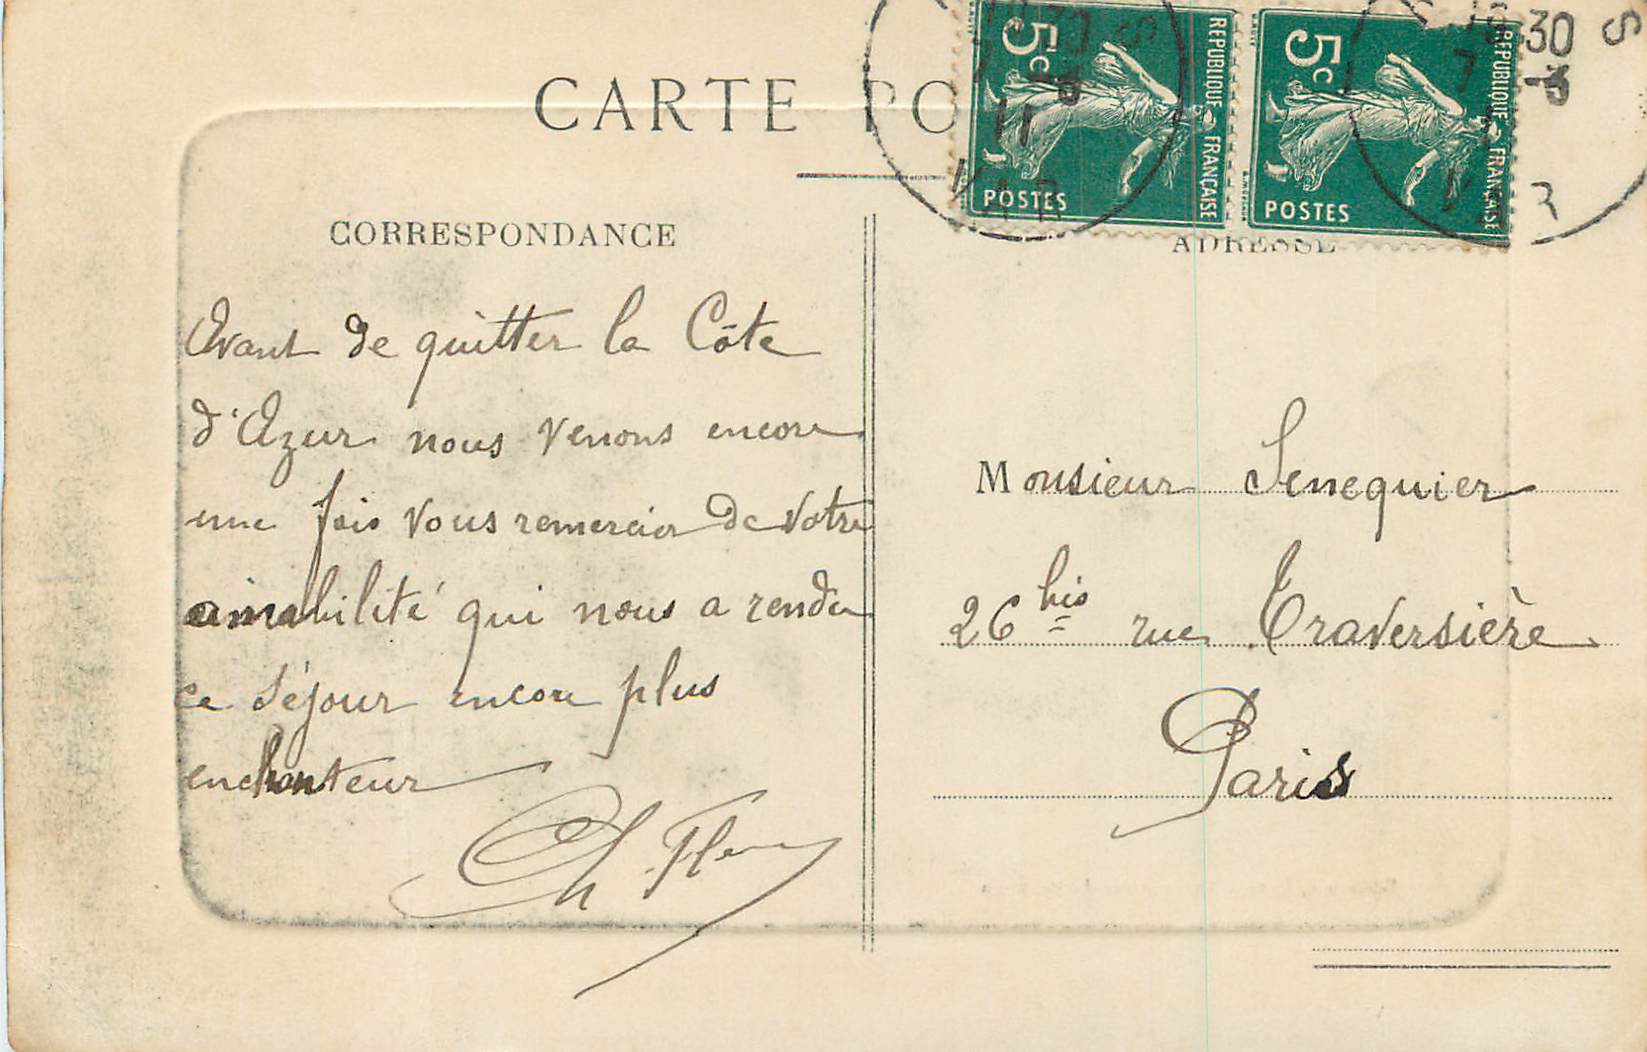 CARTE PO
CORRESPONDANCE
ADRESSE
5c
REPUBLIQUE FRANÇAISE
POSTES
5c
REPUBLIQUE FRANÇAISE
POSTES
30 S
11
VAR
Avant de quitter la Côte
d'Azur nous venons encore
une fois vous remercier de votre
aimabilité qui nous a rendu
ce séjour encore plus
enchanteur
Ch
Monsieur Senequier
26 bis rue Traversière
Paris